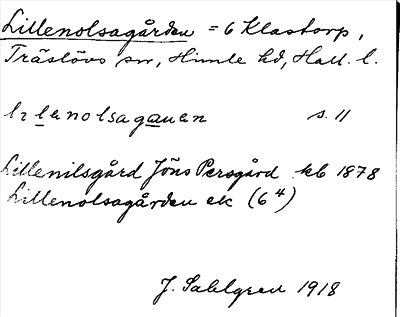 Lillenolsagården = 6 Klastorp,
Träslövs sn, Himle hd, Hall. l.
s. 11
Lillenilsgård Jöns Persgård kb 1878
Lillenolsagården ek (6⁴)
J. Sahlgren 1918